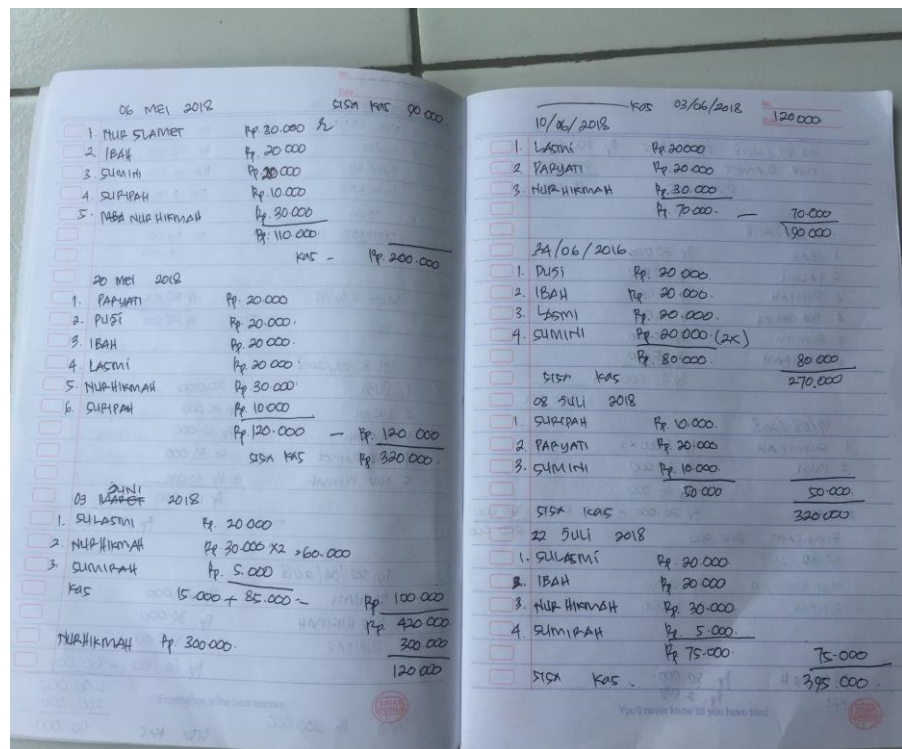 06 MEI 2018 SISA KAS 90.000.
1 NUR SLAMET Rp. 30.000
2. IBAH Rp. 20 000
3. SUMINI Rp. 20 000
4. SURIPAH Rp. 10.000
5. NUR HIKMAH Rp. 30 000
Rp. 110.000
KAS - Rp. 200.000
20 MEI 2018
1. PARYATI Rp. 20.000
2. PUSI Rp. 20.000.
3. IBAH Rp. 20 000.
4. LASMI Rp. 20 000
5. NURHIKMAH Rp 30 000
6. SURIPAH Rp. 10 000
Rp. 120.000 - Rp. 120 000
SISA KAS Rp. 320 000.
JUNI
03 MARET 2018
1. SULASMI Rp. 20 000
2. NURHIKMAH Rp 30.000 x2 = 60.000
3. SUMIRAH Rp. 5.000
KAS 15.000 + 85.000 - Rp. 100.000
Rp. 420 000
NURHIKMAH Rp 300.000. 300.000
120 000
Experience is the best teacher
KAS 03/06/2018 120 000
10/06/2018
1. LASMI Rp 20000
2. PARYATI Rp. 20.000
3. NURHIKMAH Rp. 30.000
Rp. 70 000. - 70.000
190 000
24/06/2016.
1. PUSI Rp. 20 000
2. IBAH Rp. 20.000.
3. LASMI Rp. 20.000.
4. SUMINI Rp. 20 000 (2x)
Rp. 80 000 80 000
SISA KAS 270.000
08 JULI 2018
1. SURIPAH Rp. 10.000.
2. PARYATI Rp. 20.000
3. SUMINI Rp. 10 000.
50 000 50.000.
SISA KAS 320 000
22 JULI 2018
1. SULASMI Rp. 20.000
2. IBAH Rp. 20 000
3. NUR HIKMAH Rp. 30.000
4. SUMIRAH Rp. 5.000.
Rp 75.000. 75.000
SISA KAS. 395.000.
You'll never know till you have tried